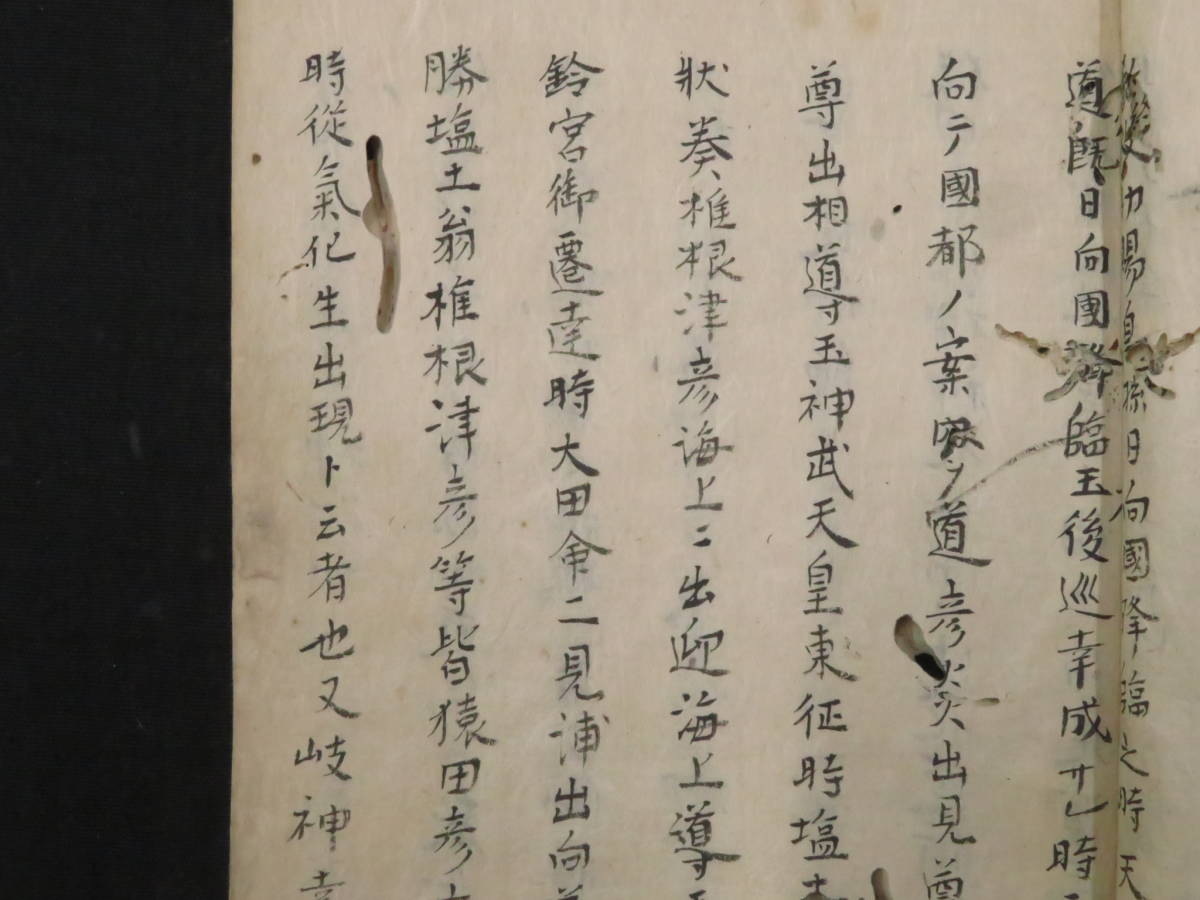 力賜皇孫日向國降臨之時天
道既日向國降臨玉後巡幸成サレ時
向テ國都ノ案内ヲ道彦炎出見尊
尊出相導玉神武天皇東征時塩土
狀奏椎根津彦海上ニ出迎海上導
鈴宮御遷達時大田命二見浦出向
勝塩土翁椎根津彦等皆猿田彦
時從氣化生出現ト云者也又岐神